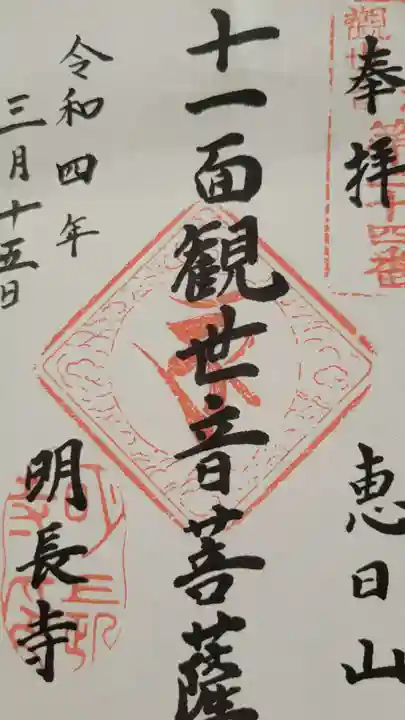 奉拝
恵日山
十一面観世音菩薩
令和四年
三月十五日
明長寺